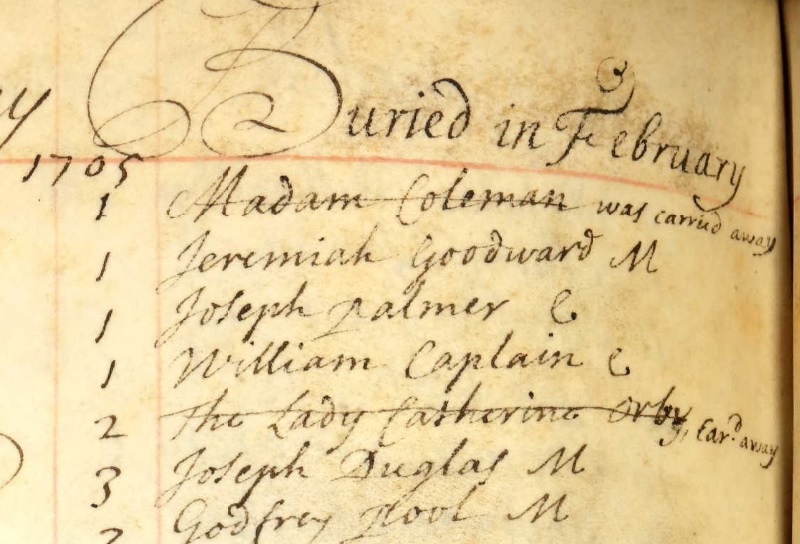 Buried in February
1705
1 Madam Coleman was carried away
1 Jeremiah Goodward M
1 Joseph Palmer C
1 William Caplain C
2 The Lady Catherine Orby, Car.d away
3 Joseph Duglas M
3 Godfrey Pool M